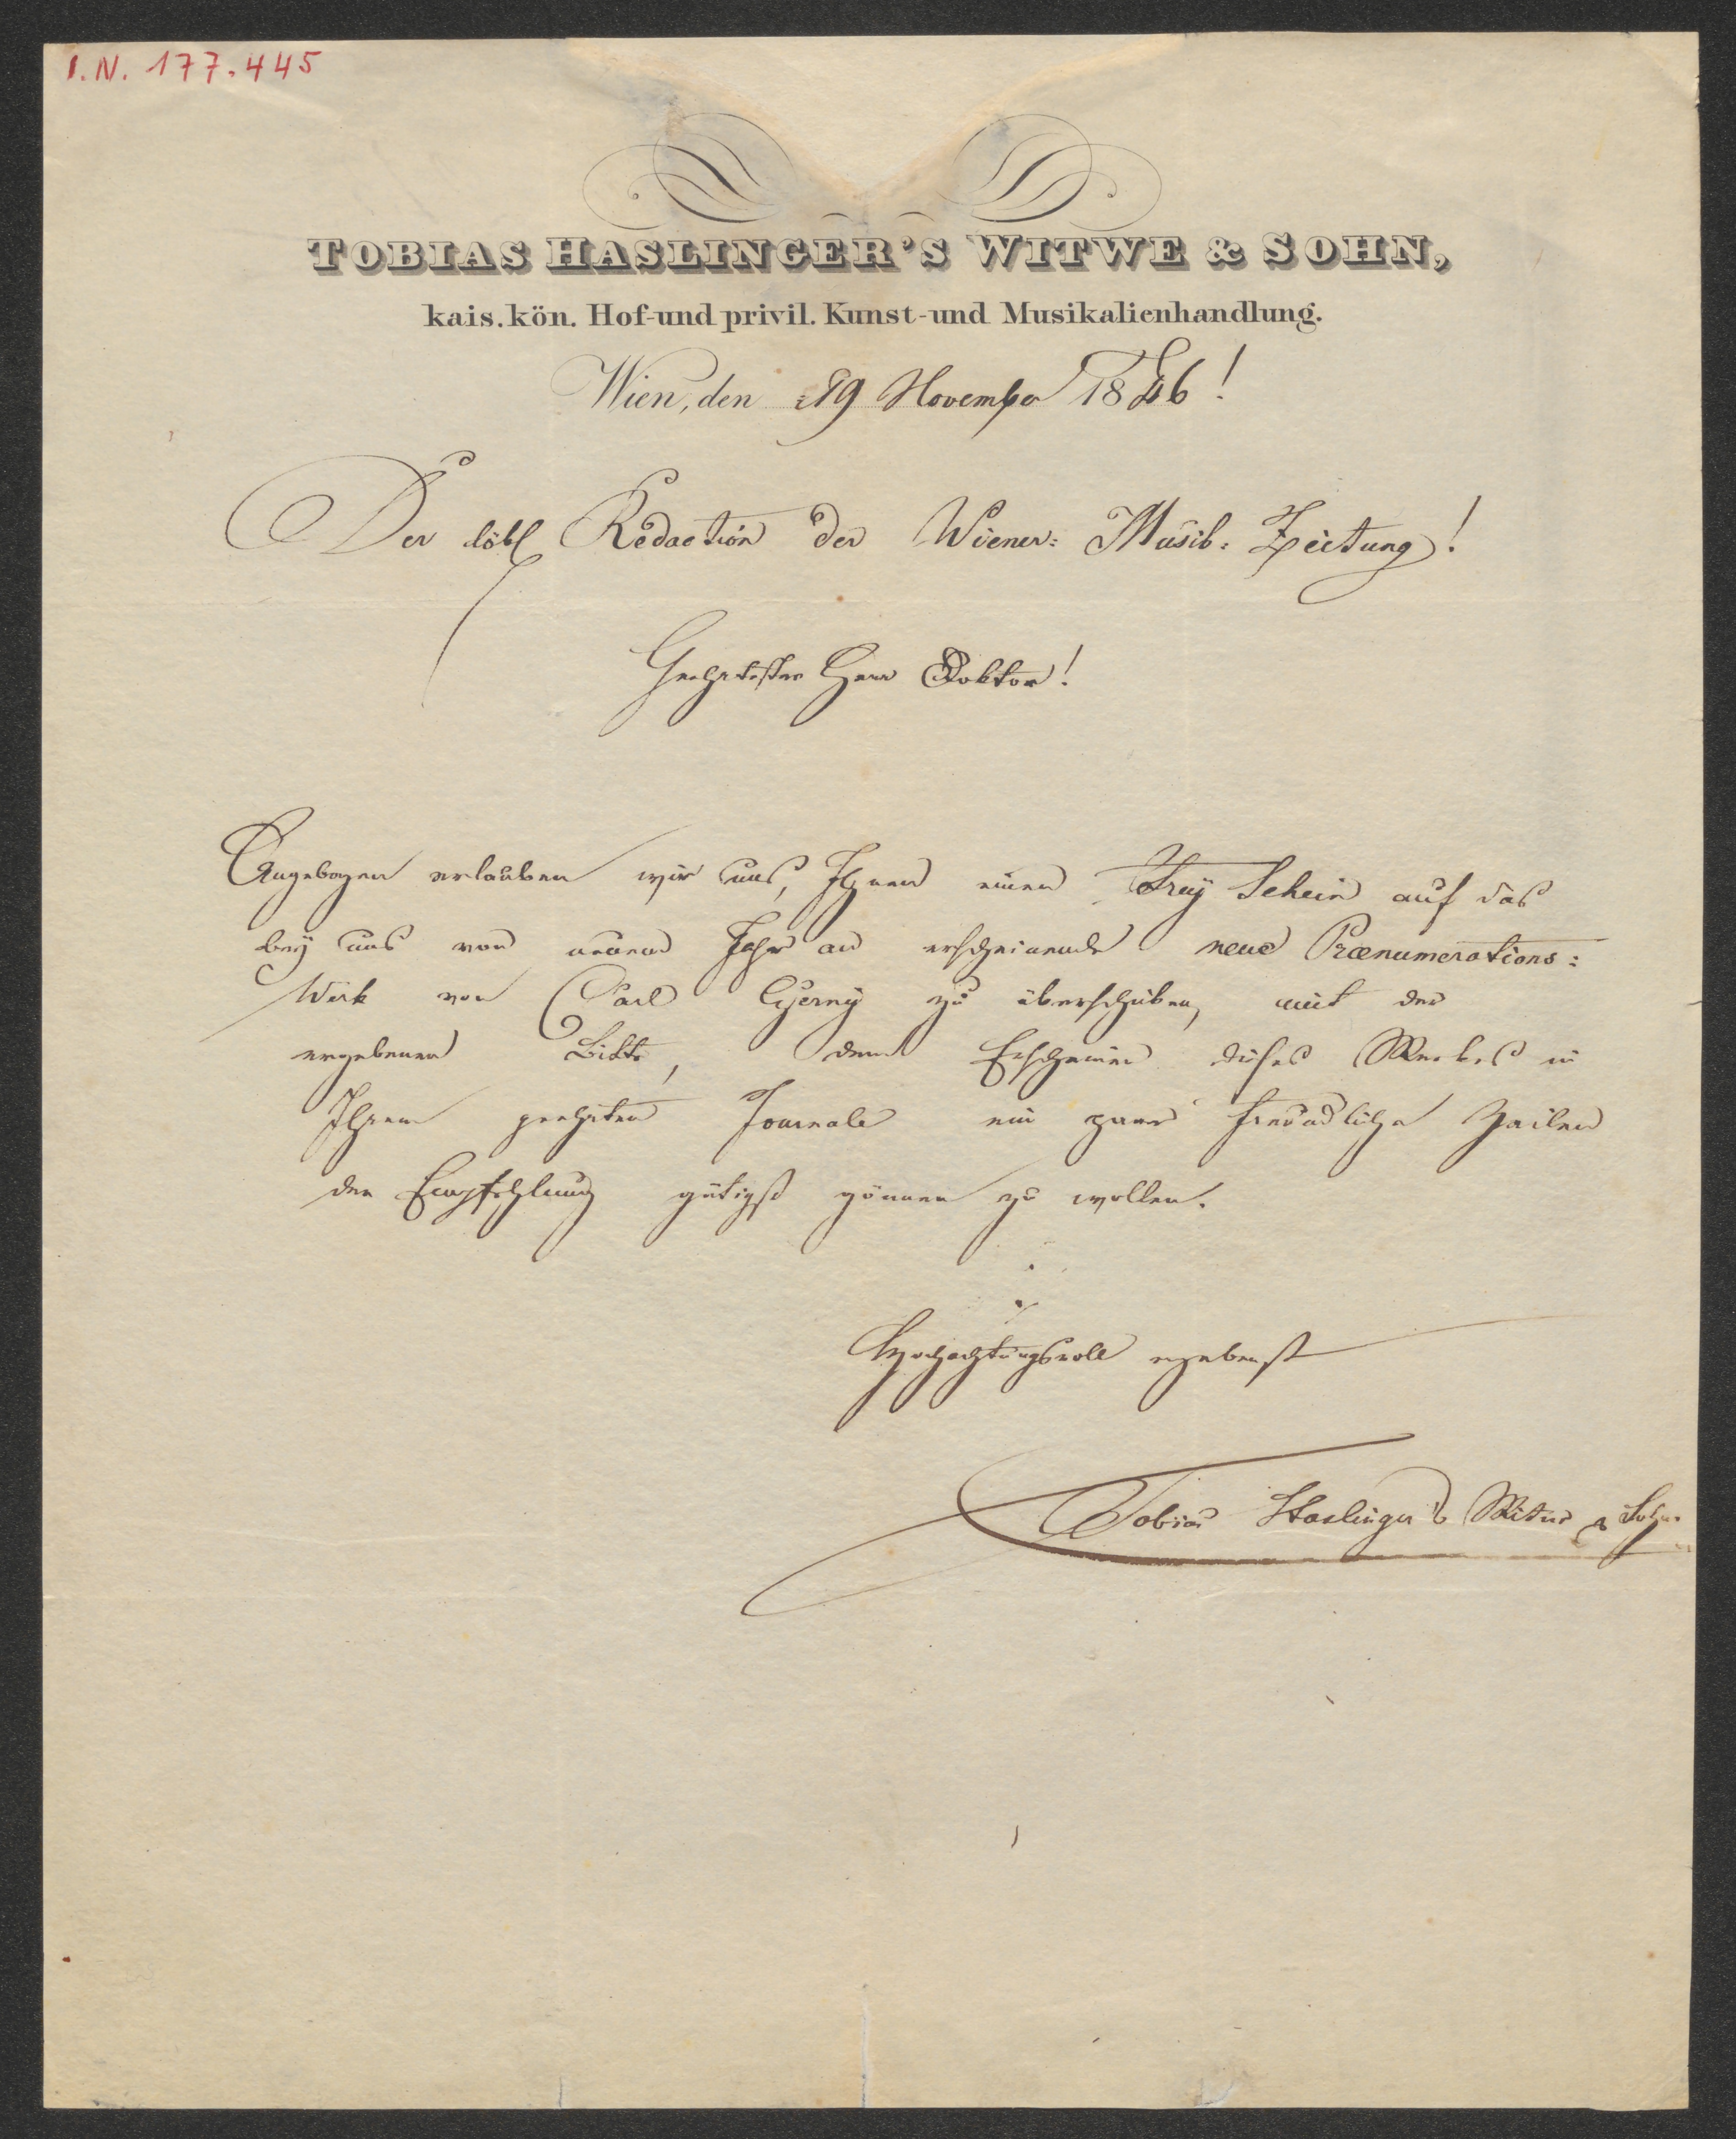 I.N. 177.445
TOBIAS HASLINGER'S WITWE & SOHN,
kais. kön. Hof- und privil. Kunst- und Musikalienhandlung.
Wien, den 19 November 1846!
Der löbl Redaction der Wiener: Musik: Zeitung!
Geehrtester Herr Doktor!
Angebogen erlauben wir uns, Ihnen einen Freÿ Schein auf das
beÿ uns von neuem Jahr an erscheinende neue Prænumerations:
Werk von Carl Czernÿ zu überschicken, mit der
ergebenen Bitte, dem Erscheinen dieses Werkes in
Ihrem geehrten Journale ein paar freundliche Zeilen
der Empfehlung gütigst gönnen zu wollen.
Hochachtungsvoll ergebenst
Tobias Haslinger's Witwe & Sohn